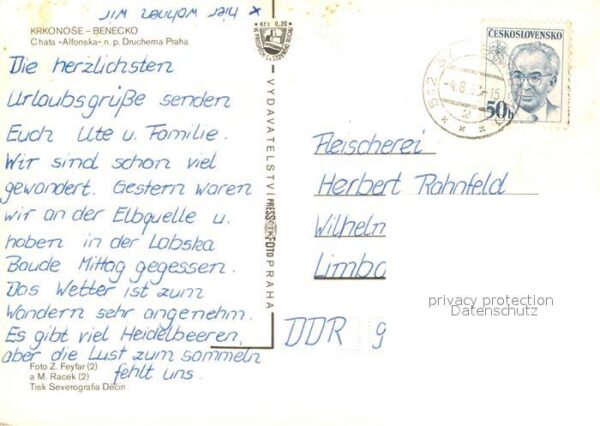 x hier wohnen wir
KRKONOŠE – BENECKO
Chata »Alfonska« n. p. Druchema Praha
Die herzlichsten
Urlaubsgrüße senden
Euch Ute u. Familie.
Wir sind schon viel
gewandert. Gestern waren
wir an der Elbquelle u.
haben in der Labska
Baude Mittag gegessen.
Das Wetter ist zum
Wandern sehr angenehm.
Es gibt viel Heidelbeeren,
aber die Lust zum sammeln
fehlt uns.
Foto Z. Feyfar (2)
a M. Racek (2)
Tisk Severografia Děčín
KčS 0,20
VYDAVATELSTVÍ PRESSFOTO PRAHA
ČESKOSLOVENSKO
50h
512
-4.8.
15
Fleischerei
Herbert Rahnfeld
Wilhelm
Limba
DDR 9
privacy protection
Datenschutz